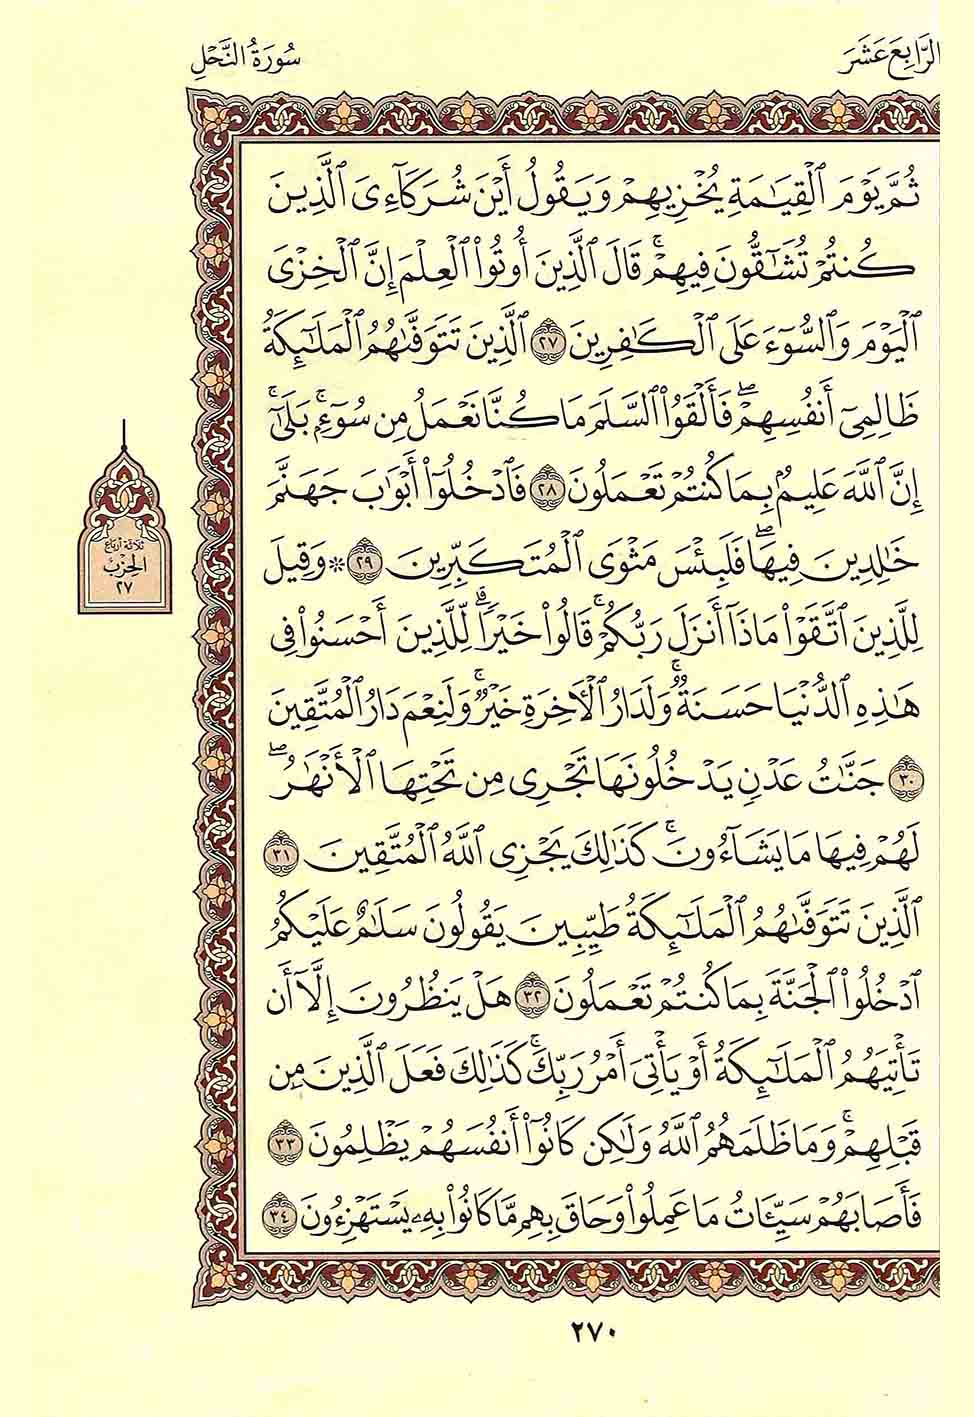 الرَّابِعَ عَشَرَ
سُورَةُ النَّحْلِ
ثُمَّ يَوْمَ ٱلْقِيَـٰمَةِ يُخْزِيهِمْ وَيَقُولُ أَيْنَ شُرَكَآءِىَ ٱلَّذِينَ
كُنتُمْ تُشَـٰٓقُّونَ فِيهِمْ ۚ قَالَ ٱلَّذِينَ أُوتُوا۟ ٱلْعِلْمَ إِنَّ ٱلْخِزْىَ
ٱلْيَوْمَ وَٱلسُّوٓءَ عَلَى ٱلْكَـٰفِرِينَ ٢٧ ٱلَّذِينَ تَتَوَفَّىٰهُمُ ٱلْمَلَـٰٓئِكَةُ
ظَالِمِىٓ أَنفُسِهِمْ ۖ فَأَلْقَوُا۟ ٱلسَّلَمَ مَا كُنَّا نَعْمَلُ مِن سُوٓءٍۭ ۚ بَلَىٰٓ ۚ
إِنَّ ٱللَّهَ عَلِيمٌۢ بِمَا كُنتُمْ تَعْمَلُونَ ٢٨ فَٱدْخُلُوٓا۟ أَبْوَٰبَ جَهَنَّمَ
خَـٰلِدِينَ فِيهَا ۖ فَلَبِئْسَ مَثْوَى ٱلْمُتَكَبِّرِينَ ٢٩ * وَقِيلَ
لِلَّذِينَ ٱتَّقَوْا۟ مَاذَآ أَنزَلَ رَبُّكُمْ ۚ قَالُوا۟ خَيْرًا ۗ لِّلَّذِينَ أَحْسَنُوا۟ فِى
هَـٰذِهِ ٱلدُّنْيَا حَسَنَةٌ ۚ وَلَدَارُ ٱلْـَٔاخِرَةِ خَيْرٌ ۚ وَلَنِعْمَ دَارُ ٱلْمُتَّقِينَ
٣٠ جَنَّـٰتُ عَدْنٍ يَدْخُلُونَهَا تَجْرِى مِن تَحْتِهَا ٱلْأَنْهَـٰرُ ۖ
لَهُمْ فِيهَا مَا يَشَآءُونَ ۚ كَذَٰلِكَ يَجْزِى ٱللَّهُ ٱلْمُتَّقِينَ ٣١
ٱلَّذِينَ تَتَوَفَّىٰهُمُ ٱلْمَلَـٰٓئِكَةُ طَيِّبِينَ يَقُولُونَ سَلَـٰمٌ عَلَيْكُمُ
ٱدْخُلُوا۟ ٱلْجَنَّةَ بِمَا كُنتُمْ تَعْمَلُونَ ٣٢ هَلْ يَنظُرُونَ إِلَّآ أَن
تَأْتِيَهُمُ ٱلْمَلَـٰٓئِكَةُ أَوْ يَأْتِىَ أَمْرُ رَبِّكَ ۚ كَذَٰلِكَ فَعَلَ ٱلَّذِينَ مِن
قَبْلِهِمْ ۚ وَمَا ظَلَمَهُمُ ٱللَّهُ وَلَـٰكِن كَانُوٓا۟ أَنفُسَهُمْ يَظْلِمُونَ ٣٣
فَأَصَابَهُمْ سَيِّـَٔاتُ مَا عَمِلُوا۟ وَحَاقَ بِهِم مَّا كَانُوا۟ بِهِۦ يَسْتَهْزِءُونَ ٣٤
ثلاثة أرباع
الحزب
٢٧
٢٧٠